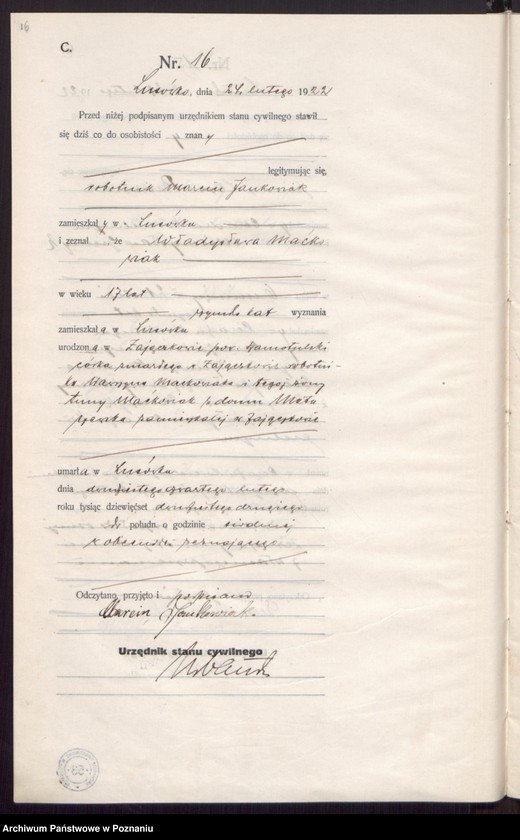 16
C.
Nr. 16
Lusówko, dnia 24. lutego 1922
Przed niżej podpisanym urzędnikiem stanu cywilnego stawił
się dziś co do osobistości znany
legitymując się,
robotnik Marcin Jankowiak
zamieszkały w Lusówku
i zeznał, że Władysława Maćko
wiak
w wieku 17 lat
rzymsko kat wyznania
zamieszkała w Lusówku
urodzona w Zajączkowie pow. Szamotulski
córka zmarłego w Zajączkowie robotni-
ka Maćkowiaka i tegoż żony
Maćkowiak z domu
zamieszkałej w Zajączkowie
umarła w Lusówku
dnia dwudziestego czwartego lutego
roku tysiąc dziewięćset dwudziestego drugiego
połudn. o godzinie siódmej
w obecności zeznającego
Odczytano, przyjęto i podpisano
Marcin Jankowiak.
Urzędnik stanu cywilnego
Archiwum Państwowe w Poznaniu